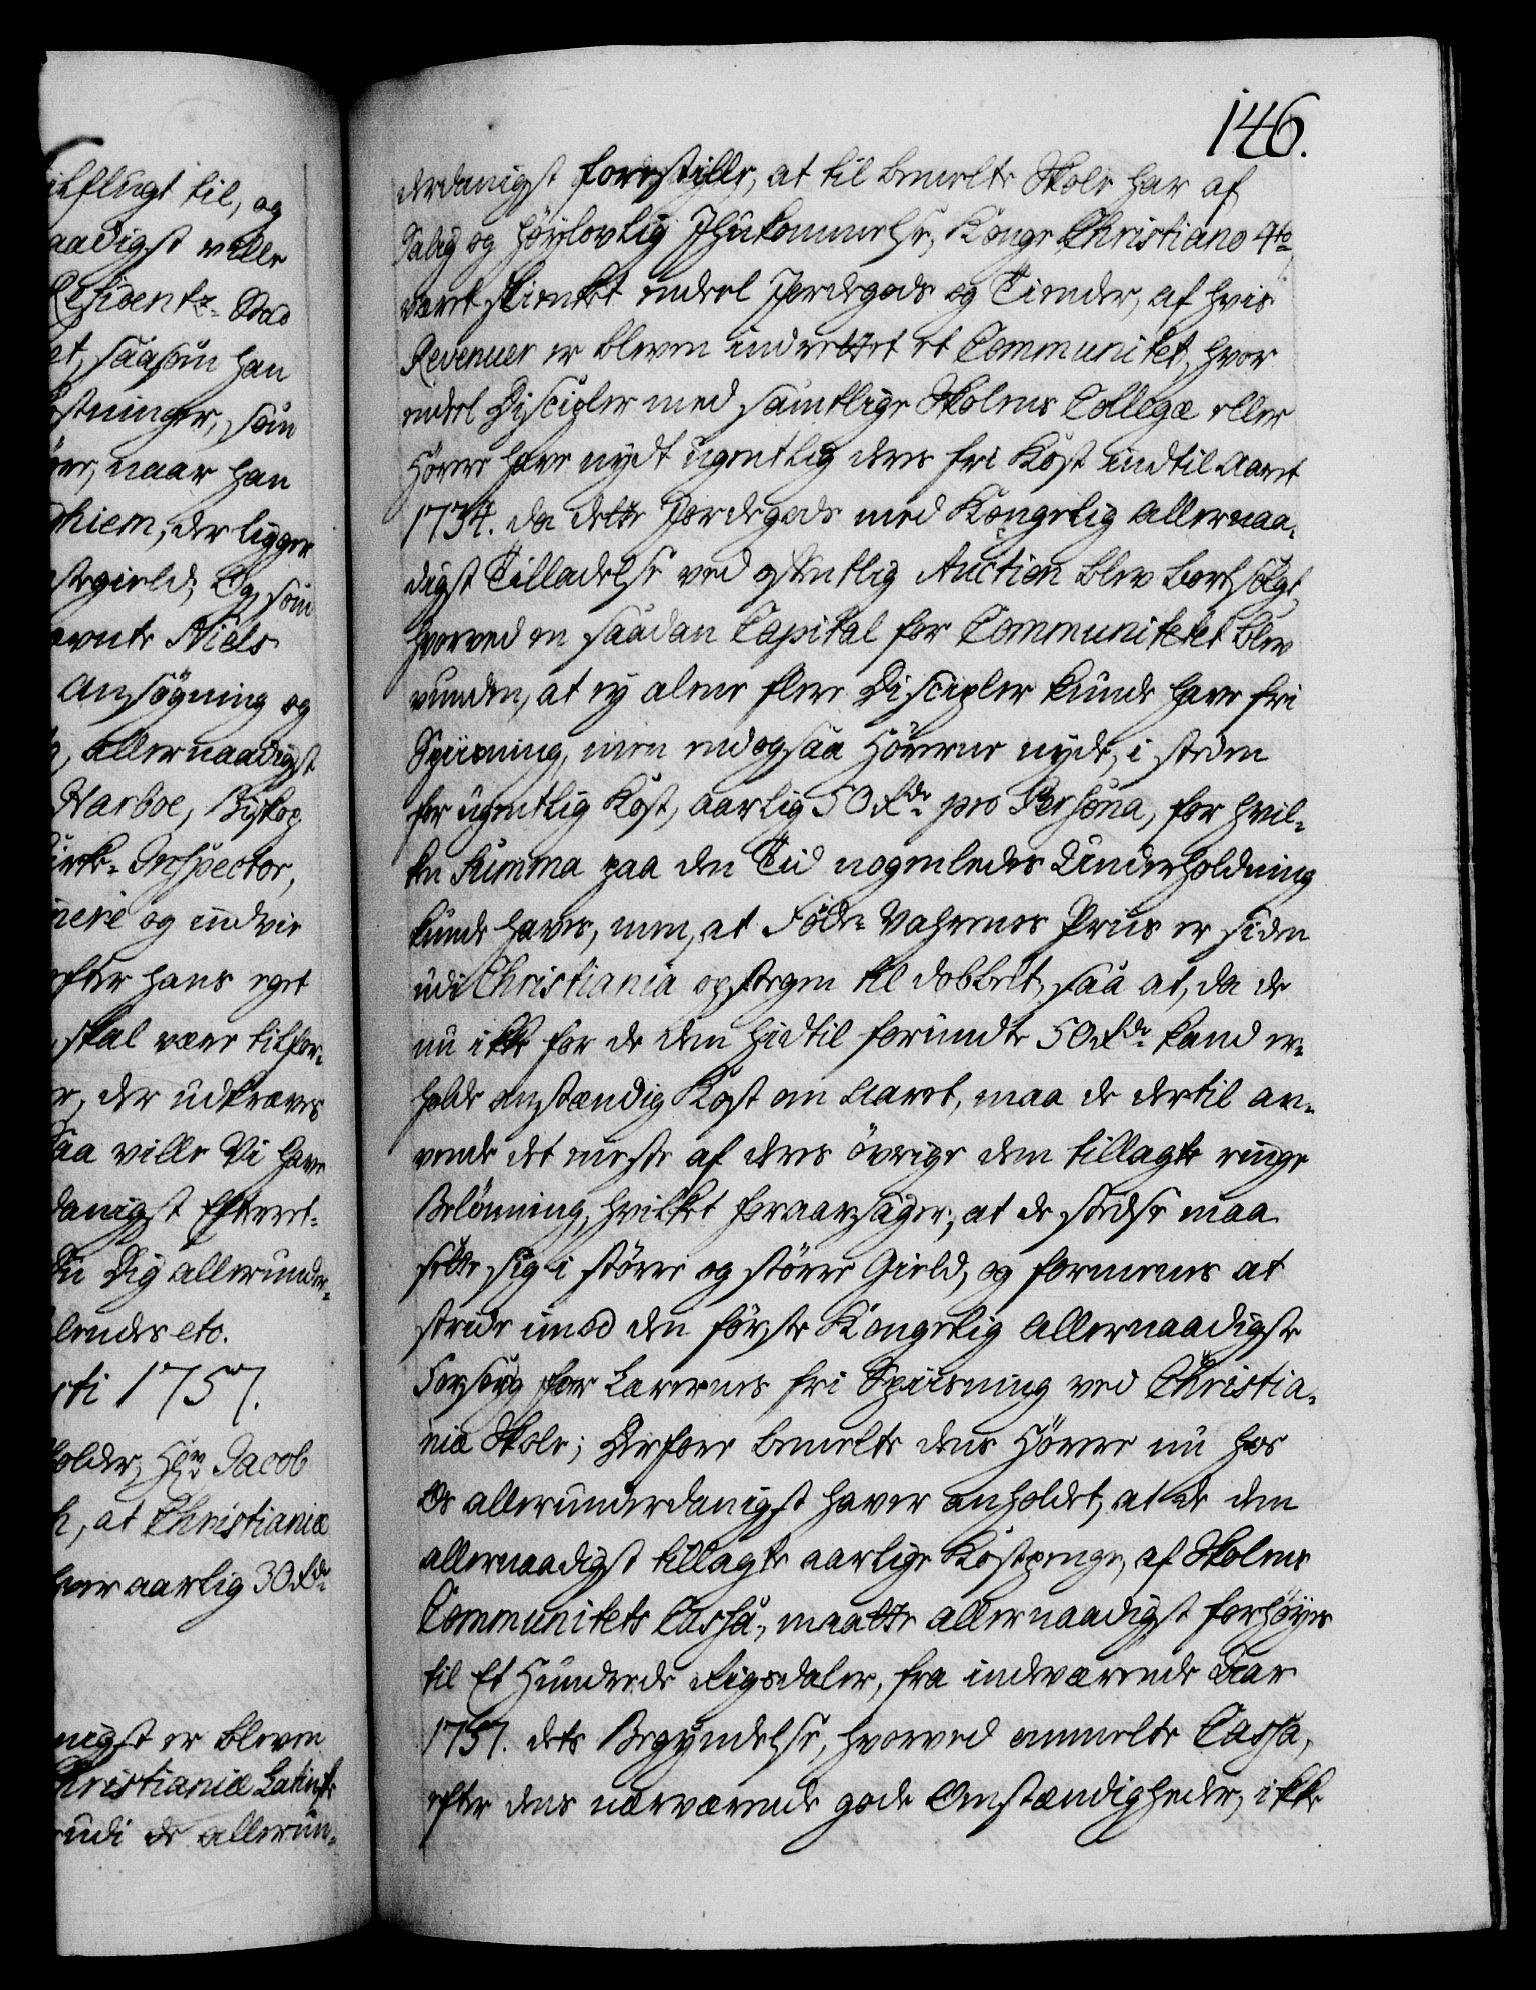 ilflugt til, og
aadigst ville
Residentz-Stad
et, saasom han
ostninger, som
öre, naar han
hiem, der ligger
stegield; Og som
evnte Niels
Ansögning og
, allernaadigst
Harboe, Biskop
irk-Inspector,
nere og indvie
efter hans eget
skal være tilfor-
e, der udkræves
Saa ville Vi have
danigst Efterret-
Du Dig allerunder-
lendes etc.
rti 1757.
holder, Hr. Jacob
h, at Christianiæ
hver aarlig 30 Rdr
nigst er bleven
Christianiæ Latinske
udi de allerun-
146.
derdanigst forestille, at til bemelte Skole har af
Salig og Höylovlig Ihukommelse, Konge Christiano 4to
været skienket endeel Jordegods og Tiender, af hvis
Revenuer er bleven indrettet et Communitet, hvor
endeel Discipler med samtlige Skolens Collegæ eller
Hörere have nydt ugentlig deres fri Kost indtil Aaret
1734. da dette Jordegods med Kongelig allernaa-
digst Tilladelse ved offentlig Auction blev bortsolgt,
hvorved en saadan Capital for Communitetet blev
vunden, at ey alene flere Discipler kunde have fri
Spiisning, men endogsaa Hörerne nyde, i steden
for ugentlig Kost, aarlig 50 Rdr. pro Persona, for hvil-
ken Summa paa den Tid nogenledes Underholdning
kunde haves, men, at Föde-Vahrenes Priis er siden
udi Christiania opstegen til dobbelt, saa at, da de
nu ikke for de dem hidtil forundte 50 Rdr. kand er-
holde anstændig Kost om Aaret, maa de dertil an-
vende det meste af deres övrige dem tillagte ringe
Belönning, hvilket foraarsager, at de stedse maa
sette sig i större og större Gield, og formenes at
stride imod den förste Kongelig allernaadigste
Forsorg for Lærernes fri Spiisning ved Christia-
niæ Skole; Derfore bemelte dens Hörere nu hos
Os allerunderdanigst haver anholdet, at de dem
allernaadigst tillagte aarlige Kostpenge, af Skolens
Communitets Cassa, maatte allernaadigst forhöyes
til Et Hundrede Rigsdaler, fra indeværende Aar
1757. dets Begyndelse, hvorved ommelte Cassa,
efter dens nærværende gode Omstændigheder, ikke